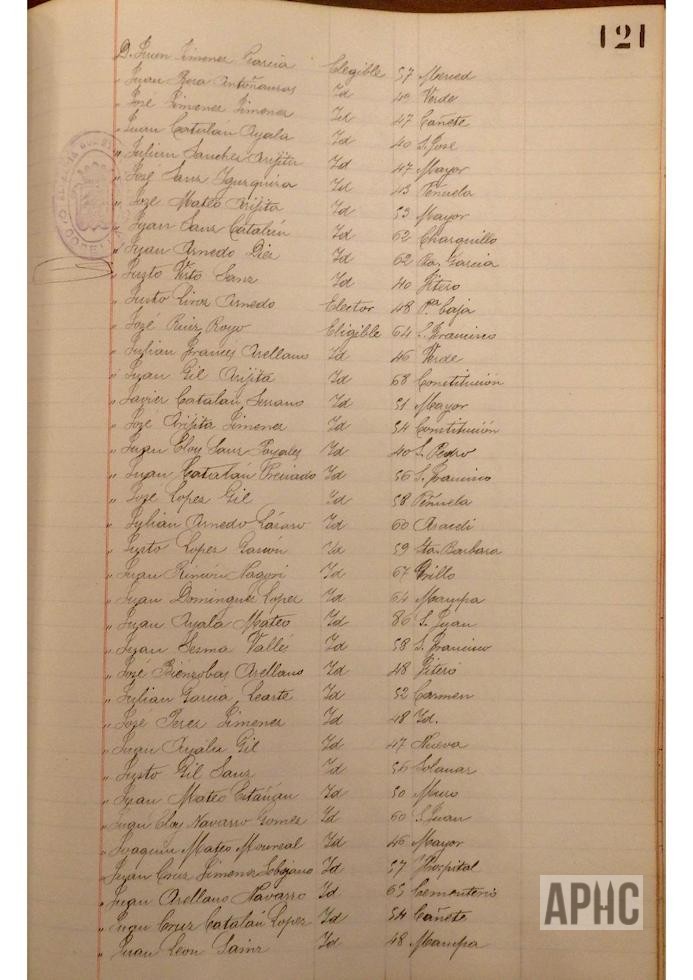 121
D. Juan Jimenez Garcia Elegible 57 Merced
" Juan Rosa Id 49 Verde
" José Jimenez Jimenez Id 47 Cañete
" Juan Catalán Ayala Id 40 S. José
" Julian Sanchez Arijita Id 47 Mayor
" José Sanz Id 43 Peñuela
" José Mateo Arijita Id 53 Mayor
" Juan Sanz Catalán Id 62 Charquillo
" Juan Arnedo Diez Id 62 Garcia
" Justo Sanz Id 40 Fitero
" Justo Arnedo Elector 48 Pª Caja
" José Ruiz Royo Eligible 64 S. Francisco
" Julian Francés Arellano Id 46 Verde
" Juan Gil Arijita Id 68 Constitución
" Javier Catalán Serrano Id 51 Mayor
" José Arijita Jimenez Id 54 Constitución
" Juan Eloy Sanz Id 40 S. Pedro
" Juan Catalán Preciado Id 56 S. Francisco
" José Lopez Gil Id 58 Peñuela
" Julian Arnedo Lázaro Id 60 Araceli
" Justo Lopez Garcón Id 59 Sta. Barbara
" Juan Rincón Id 67 Grillo
" Juan Dominguez Lopez Id 64 Mampa
" Juan Ayala Mateo Id 86 S. Juan
" Juan Sesma Vallés Id 58 S. Francisco
" José Bienzobas Arellano Id 48 Fitero
" Julian Garcia Id 52 Carmen
" José Perez Jimenez Id 48 Id.
" Juan Ayala Gil Id 47 Nueva
" Justo Gil Sanz Id 56 Solanar
" Juan Mateo Id 50 Muro
" Juan Eloy Navarro Gomez Id 60 S. Juan
" Joaquin Mateo Monreal Id 46 Mayor
" Juan Cruz Jimenez Id 57 Hospital
" Juan Arellano Navarro Id 65 Cementerio
" Juan Cruz Catalán Lopez Id 54 Cañete
" Juan Leon Sainz Id 48 Mampa
APHC